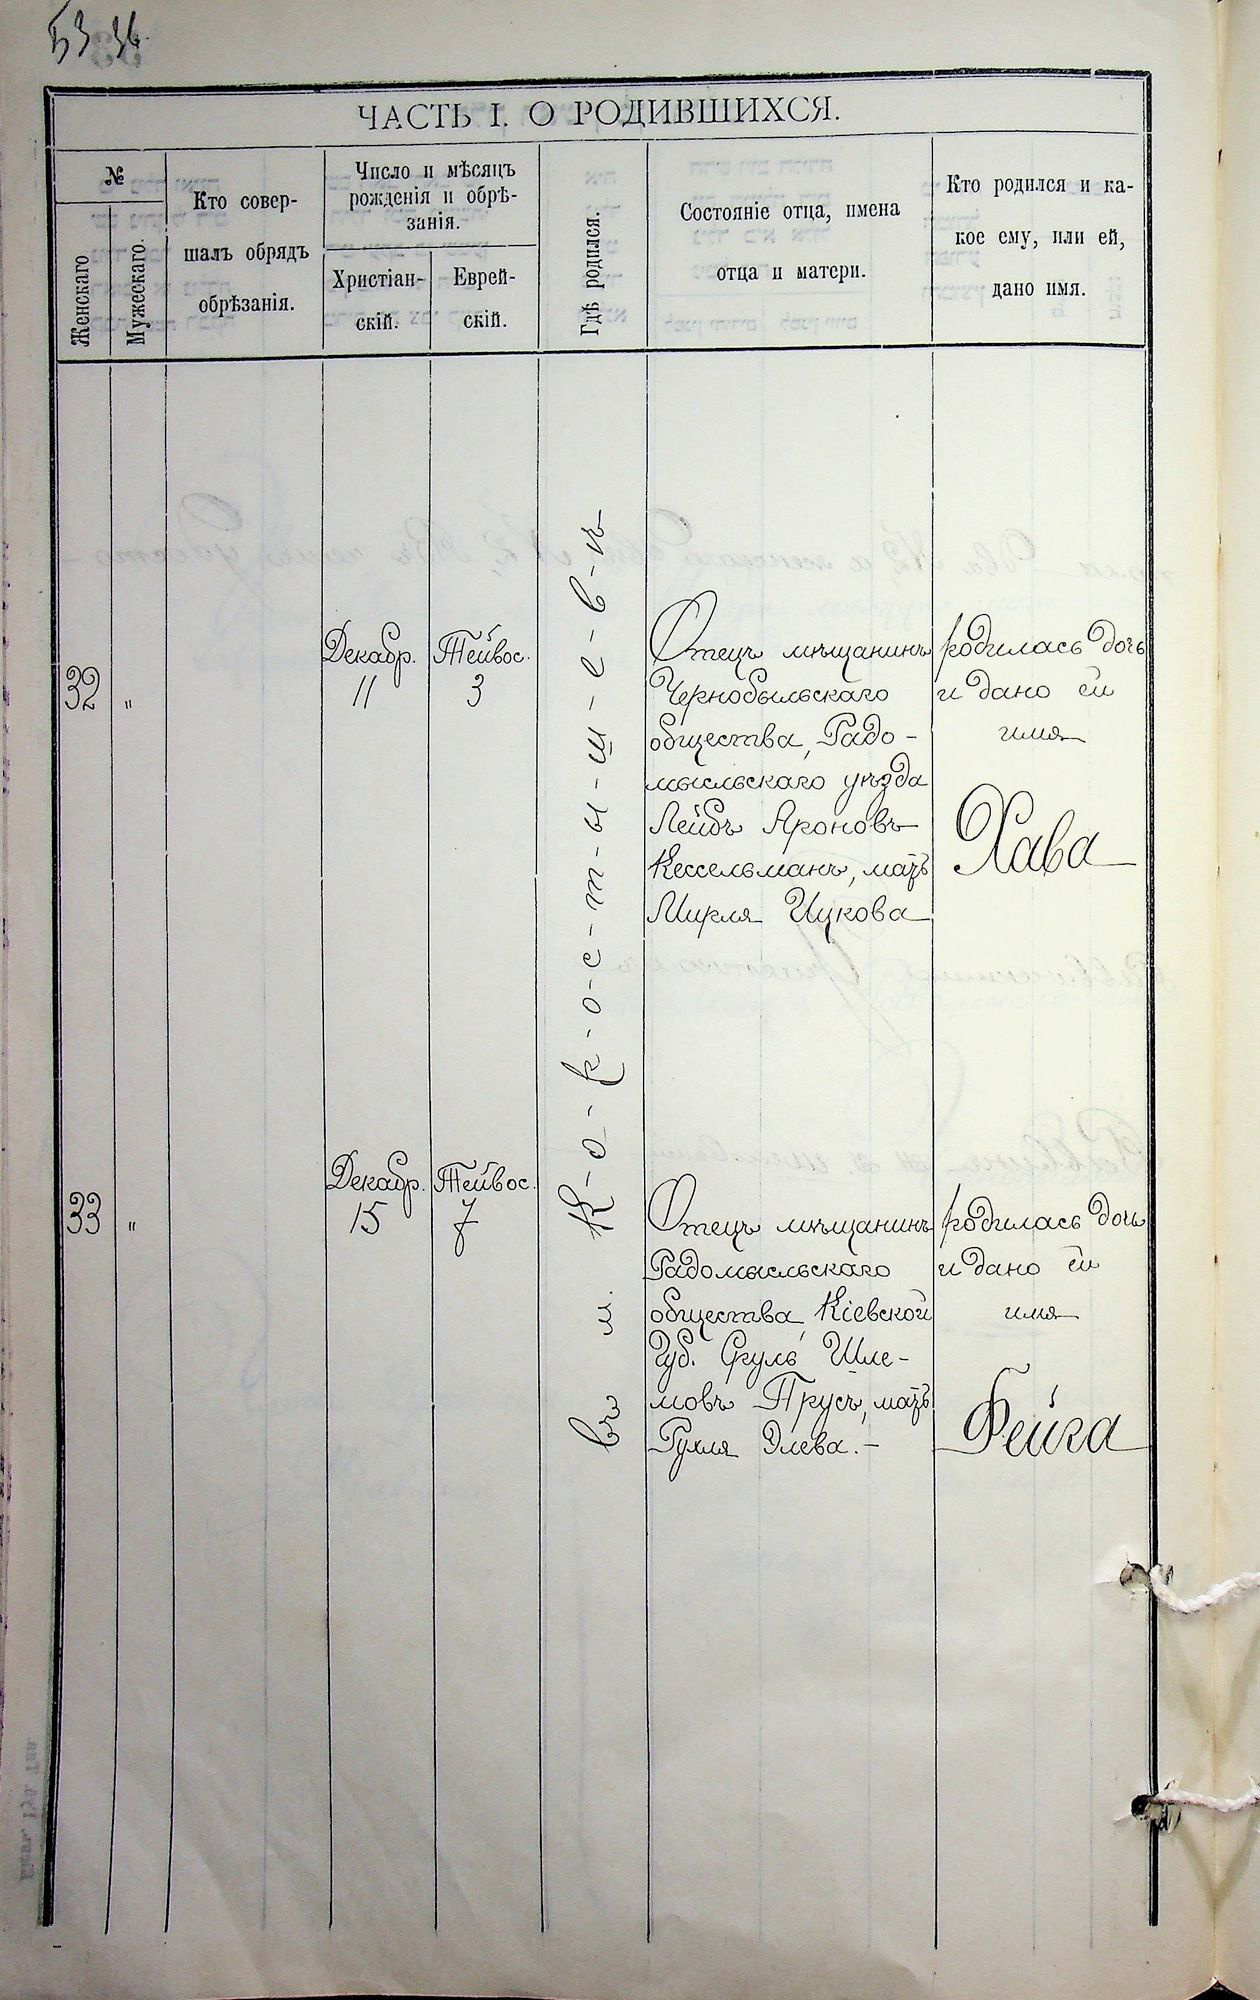 53 36.
ЧАСТЬ I. О РОДИВШИХСЯ.
№
Женскаго
Мужескаго.
Кто совер-
шалъ обрядъ
обрѣзанія.
Число и мѣсяцъ
рожденія и обрѣ-
занія.
Христіан-
скій.
Еврей-
скій.
Гдѣ родился.
Состояніе отца, имена
отца и матери.
Кто родился и ка-
кое ему, или ей,
дано имя.
въ м. К-о-р-о-с-т-ы-ш-е-в-ѣ
32 "
Декабр.
11
Тейвос.
3
Отецъ мѣщанинъ
Чернобыльскаго
общества, Радо-
мысльскаго уѣзда
Лейбъ Ароновъ
Кессельманъ, мать
Мирля Ицкова
родилась дочь
и дано ей
имя
Хава
33 "
Декабр.
15
Тейвос.
7
Отецъ мѣщанинъ
Радомысльскаго
общества, Кіевской
Губ. Сруль Шле-
мовъ Прусъ, мать
Рухля Элева. -
родилась дочь
и дано ей
имя
Фейга